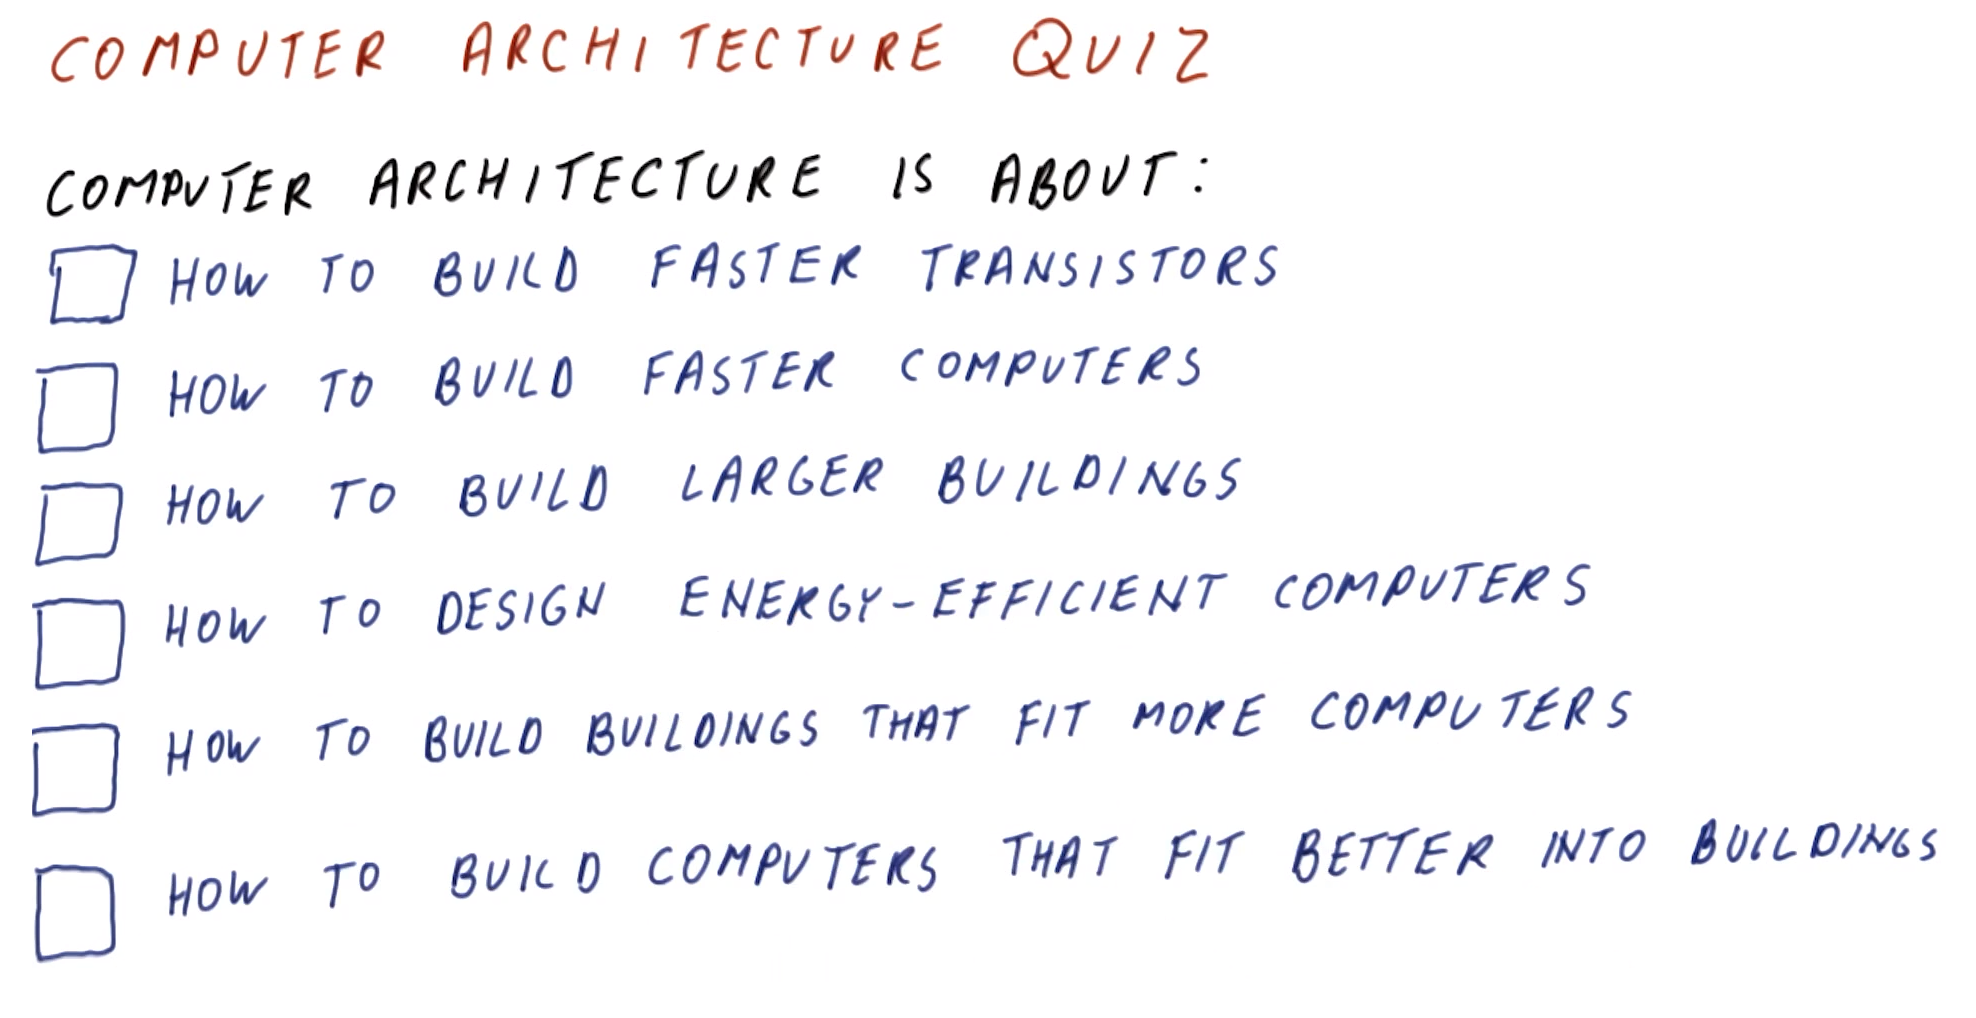 COMPUTER ARCHITECTURE QUIZ
COMPUTER ARCHITECTURE IS ABOUT:
HOW TO BUILD FASTER TRANSISTORS
HOW TO BUILD FASTER COMPUTERS
HOW TO BUILD LARGER BUILDINGS
HOW TO DESIGN ENERGY-EFFICIENT COMPUTERS
HOW TO BUILD BUILDINGS THAT FIT MORE COMPUTERS
HOW TO BUILD COMPUTERS THAT FIT BETTER INTO BUILDINGS